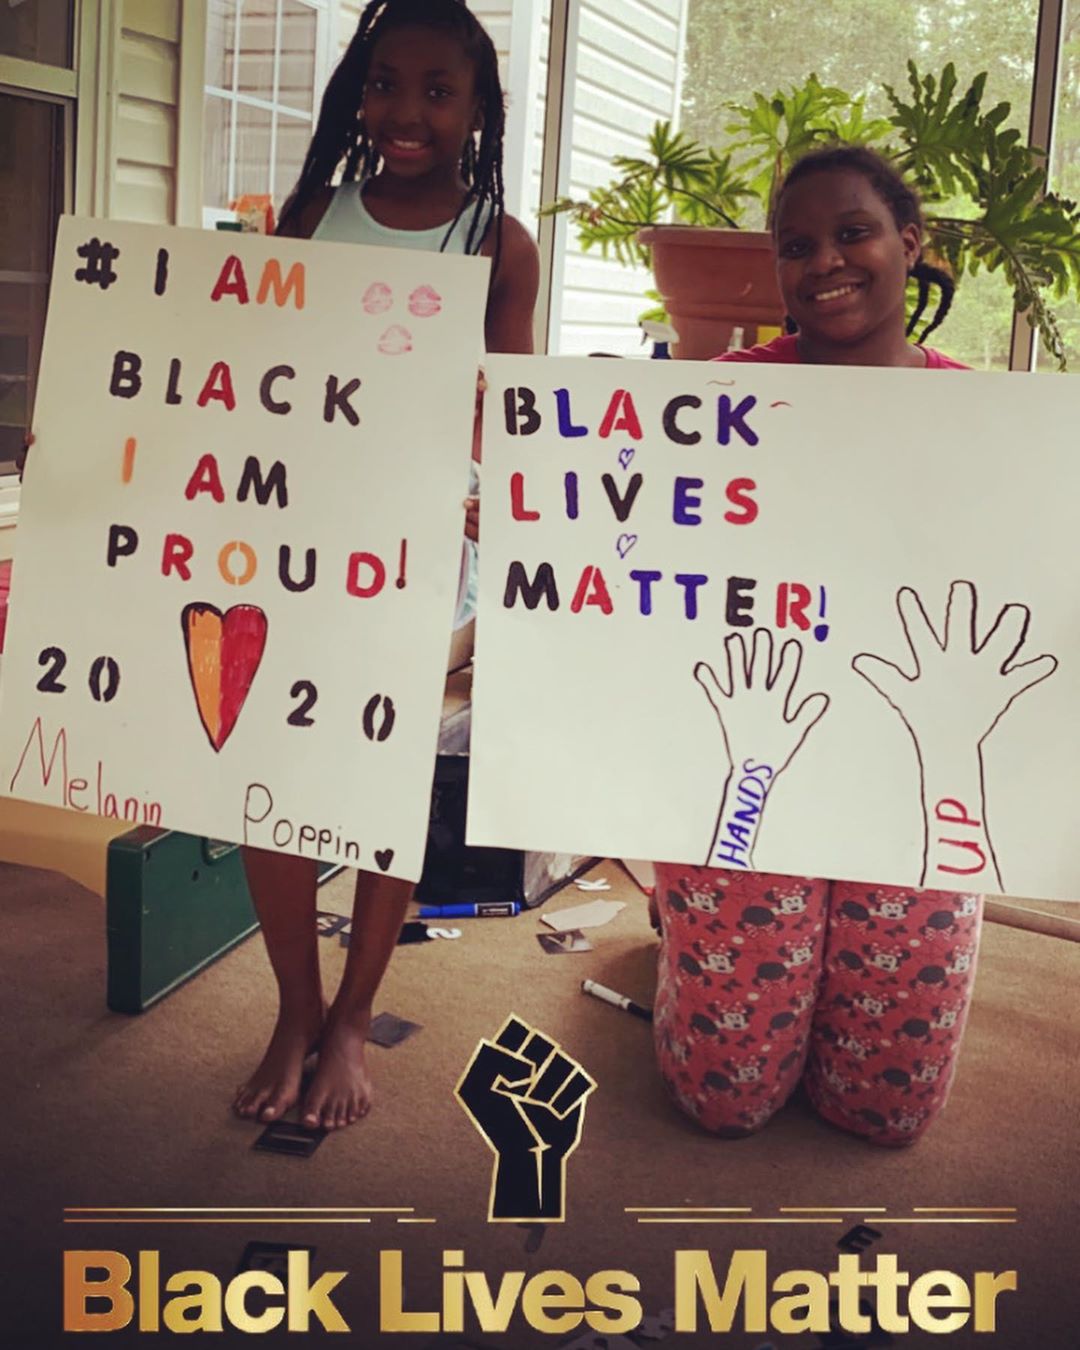 # I AM
BLACK
I AM
PROUD!
20 20
Melanin
Poppin
BLACK
LIVES
MATTER!
HANDS
UP
Black Lives Matter